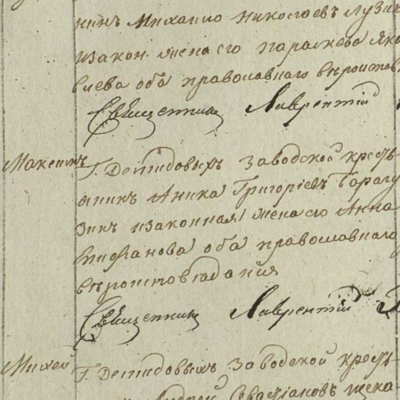 нинъ Михаило Николаевъ Лузин
изакон. жена его Параскева Яко
влева оба православнаго вероиспов
Священникъ Лаврентій
Максимъ
Г. Демидовыхъ Заводской кресть
янинъ Аника Григоріевъ
зинъ изаконная жена его Анна
Стефанова оба православнаго
вероисповедания
Священникъ Лаврентій
Михей
Г. Демидовыхъ Заводской кресть
Андрей Севастіановъ